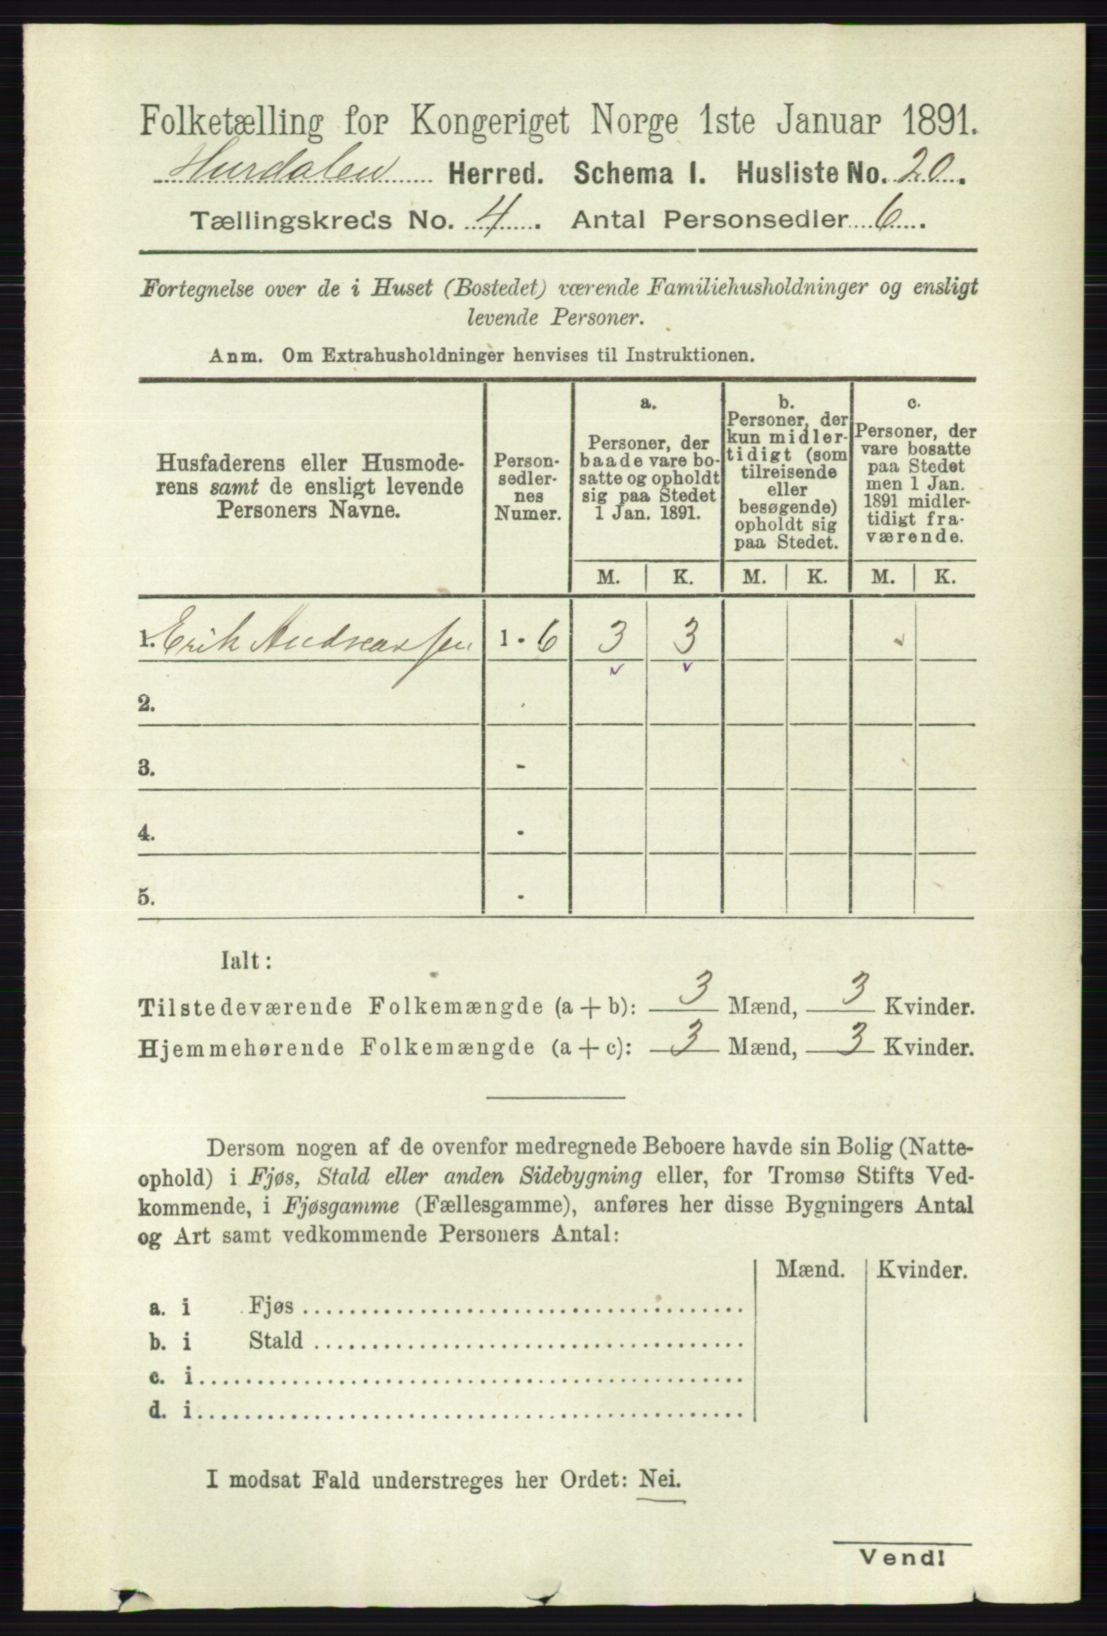 Folketælling for Kongeriget Norge 1ste Januar 1891.
Hurdalen Herred. Schema I. Husliste No. 20.
Tællingskreds No. 4. Antal Personsedler 6.
Fortegnelse over de i Huset (Bostedet) værende Familiehusholdninger og ensligt
levende Personer.
Anm. Om Extrahusholdninger henvises til Instruktionen.
Husfaderens eller Husmode-
rens samt de ensligt levende
Personers Navne.
Person-
sedler-
nes
Numer.
a.
Personer, der
baade vare bo-
satte og opholdt
sig paa Stedet
1 Jan. 1891.
b.
Personer, der
kun midler-
tidigt (som
tilreisende
eller
besøgende)
opholdt sig
paa Stedet.
c.
Personer, der
vare bosatte
paa Stedet
men 1 Jan.
1891 midler-
tidigt fra-
værende.
M. K. M. K. M. K.
1. Erik Andreassen 1 - 6 3 3
2.
3. -
4. -
5. -
Ialt:
Tilstedeværende Folkemængde (a + b): 3 Mænd, 3 Kvinder.
Hjemmehørende Folkemængde (a + c): 3 Mænd, 3 Kvinder.
Dersom nogen af de ovenfor medregnede Beboere havde sin Bolig (Natte-
ophold) i Fjøs, Stald eller anden Sidebygning eller, for Tromsø Stifts Ved-
kommende, i Fjøsgamme (Fællesgamme), anføres her disse Bygningers Antal
og Art samt vedkommende Personers Antal:
Mænd. Kvinder.
a. i Fjøs
b. i Stald
c. i
d. i
I modsat Fald understreges her Ordet: Nei.
Vend!